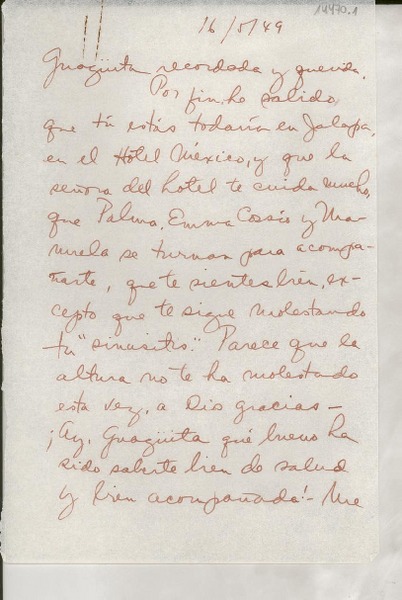 14470.1
16/5/49
Guagüita recordada y querida.
Por fin he sabido
que tú estás todavía en Jalapa,
en el Hotel México, y que la
señora del hotel te cuida mucho,
que Palma, Emma Cossío y Ma-
nuela se turnan para acompa-
ñarte, que te sientes bien, ex-
cepto que te sigue molestando
tu "sinusitis". Parece que la
altura no te ha molestado
esta vez, a Dio gracias -
¡Ay, Guagüita qué bueno ha
sido saberte bien de salud
y bien acompañada! - Me